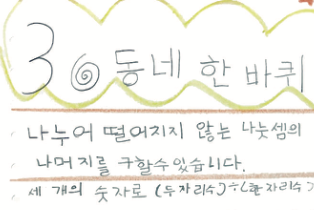 3 동네 한 바퀴
나누어 떨어지지 않는 나눗셈의
나머지를 구할수있습니다.
세 개의 숫자로 (두자리수)÷(한자리수)